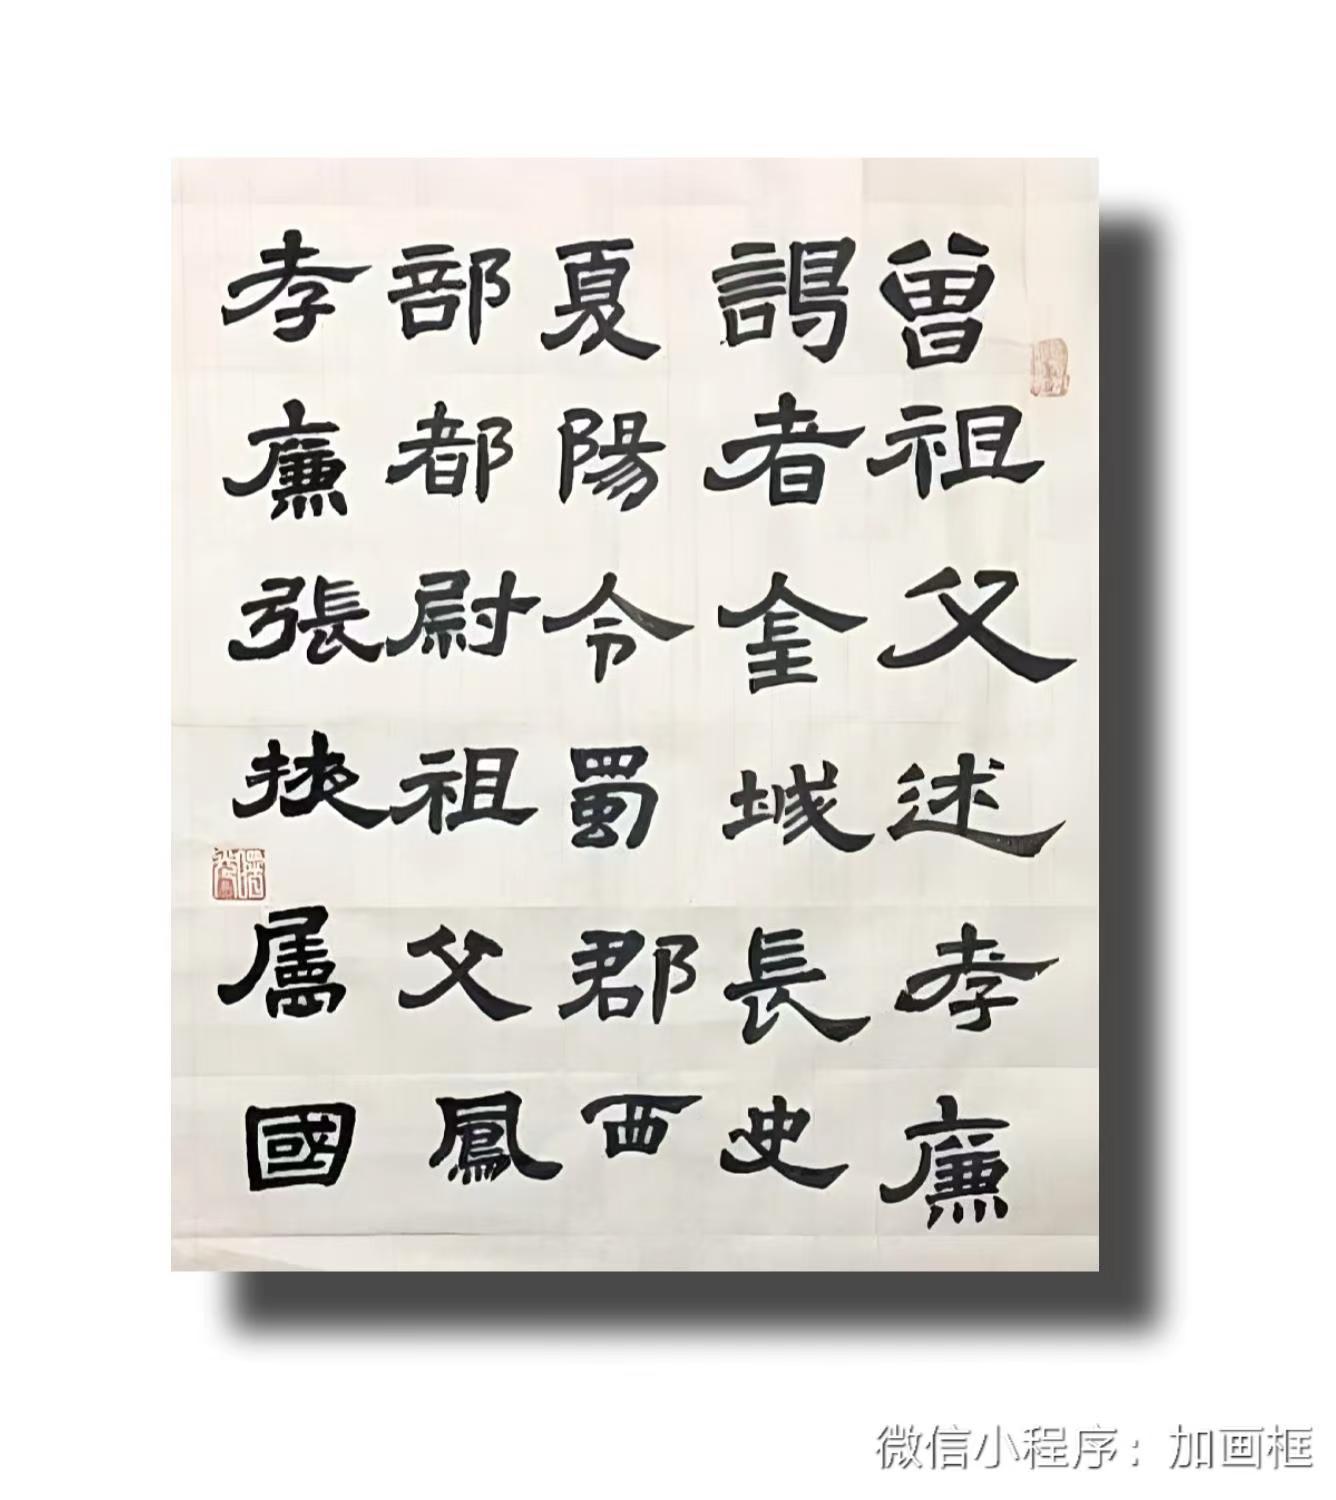 曾祖父述孝廉
謁者金城長史
夏陽令蜀郡西
部都尉祖父鳳
孝廉張掖屬國
微信小程序：加画框